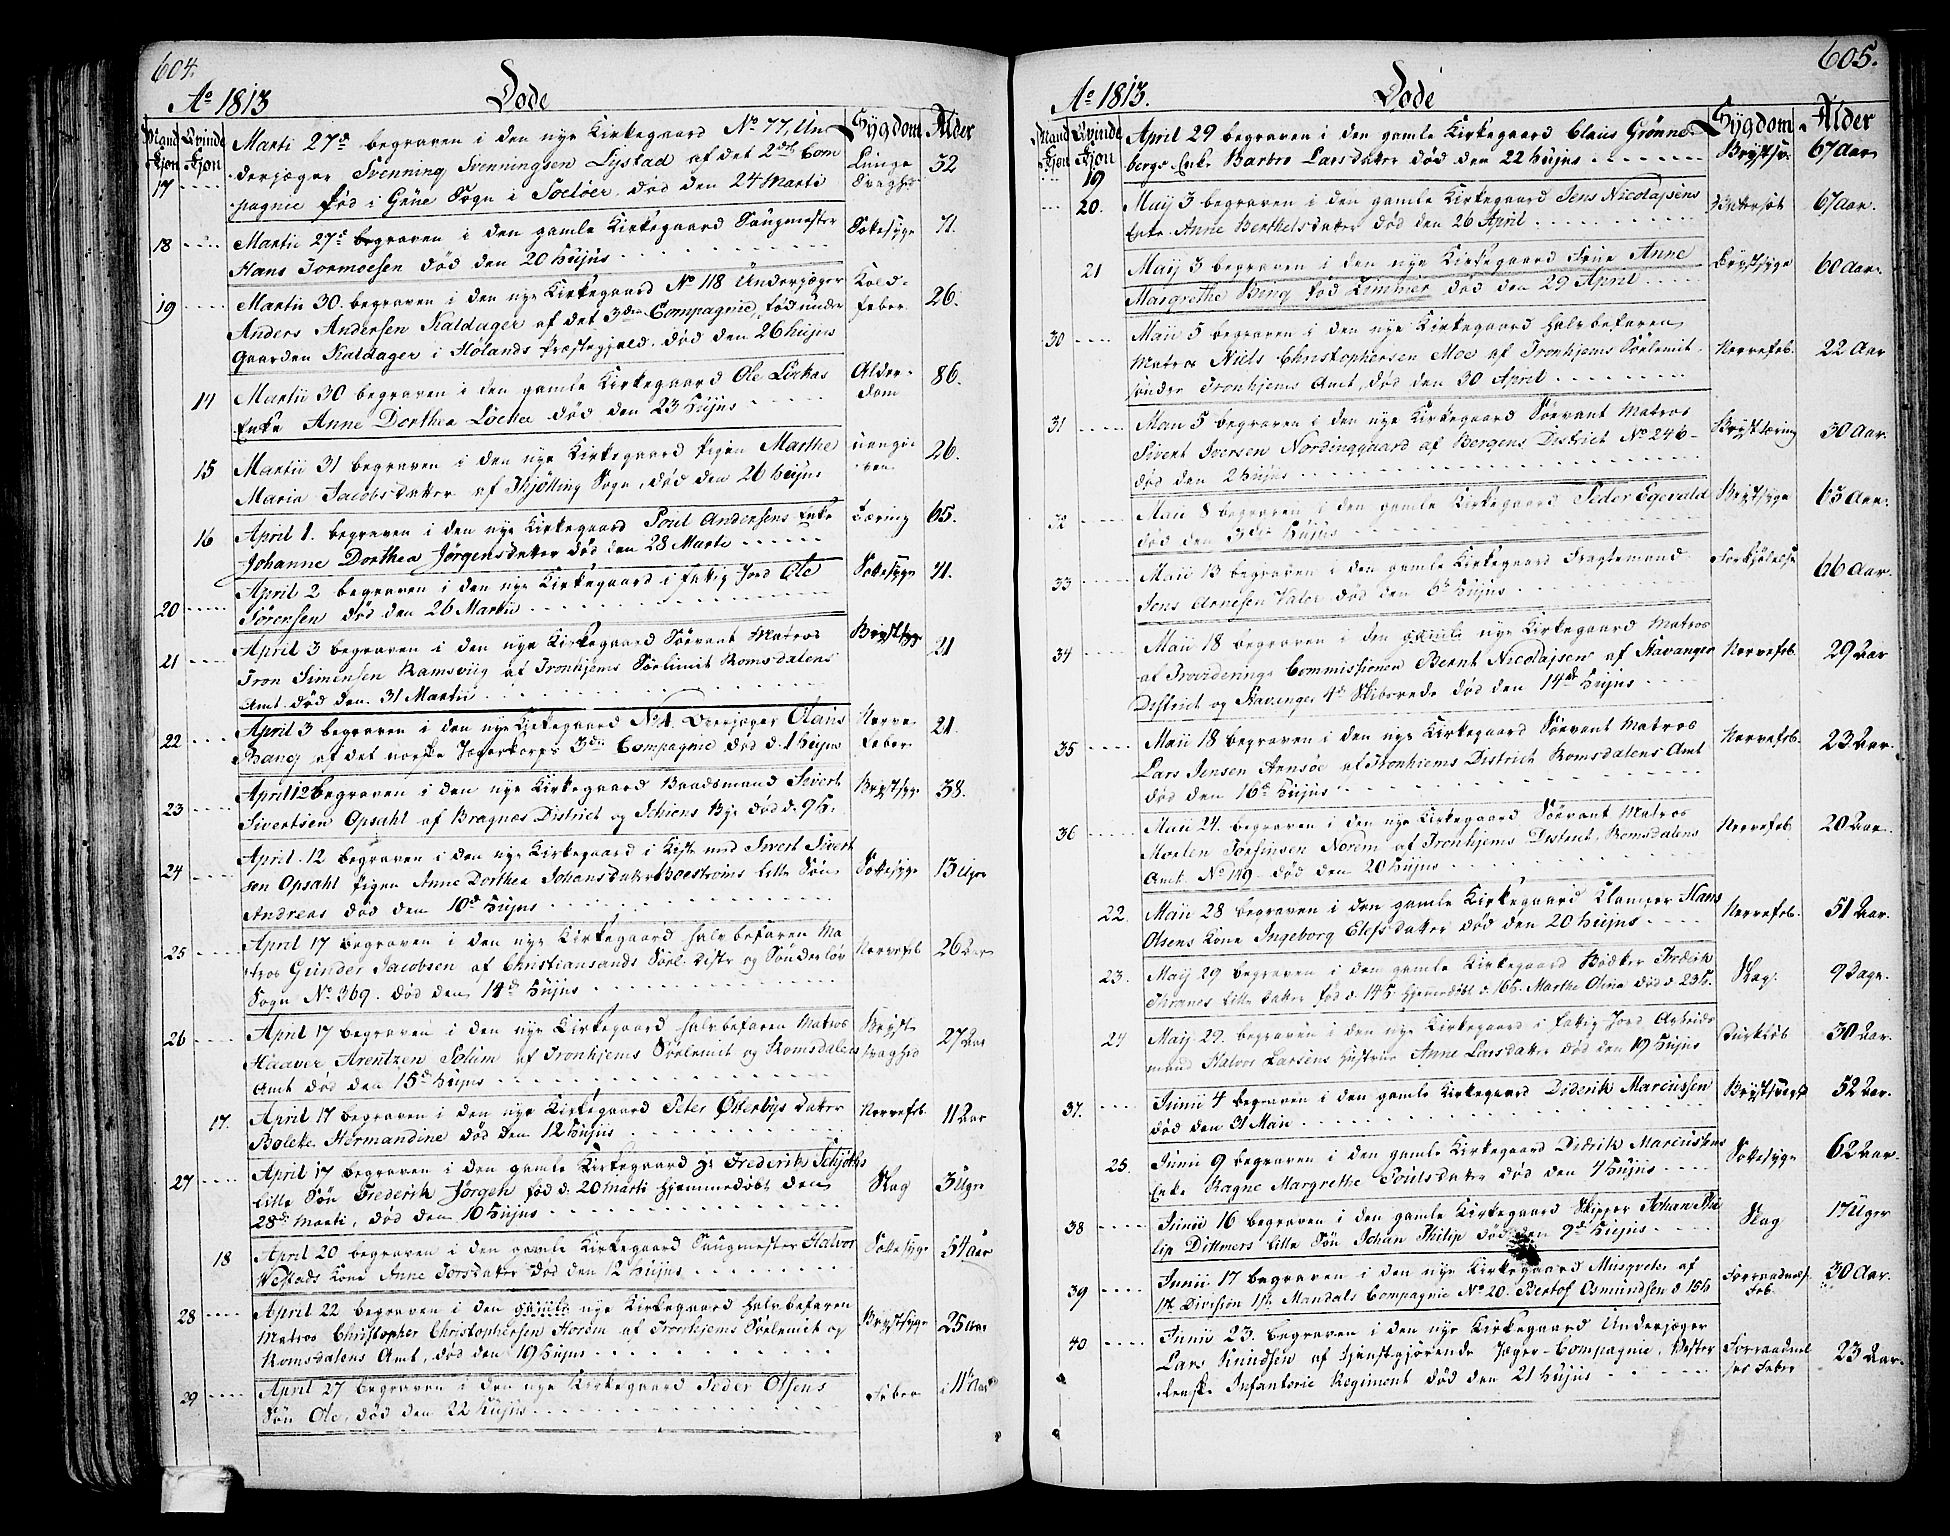 604.
Ao 1813
Döde
Mand Kjön
Qvinde Kjön
Sygdom
Alder
17 Martii 27de begraven i den nye Kirkegaard No 77, Un
derjæger Svenning Svenningsen Systad af det 2det Com
pagnie fød i Gene Sogn i Soelöer, død den 24 Martii
Lunge Svaghed
32
18 Martii 27de begraven i den gamle Kirkegaard Saugmester
Hans Tormoesen død den 20 Hujus
Sottesyge
71.
19 Martii 30. begraven i den nye Kirkegaard No 118 Underjæger
Anders Andersen Kaldager af det 3die Compagnie, fød under
Gaarden Kaldager i Hölands Præstegjæld. død den 26 Hujus
Kold-
feber
26.
14 Martii 30 begraven i den gamle Kirkegaard Ole Linkas
Enke Anne Dorthea Löcke død den 23 Hujus
Alder-
dom
86.
15 Martii 31 begraven i den nye Kirkegaard Pigen Marthe
Maria Jacobsdatter af Thjölling Sogn, død den 26 Hujus
uangi-
ven
26.
16 April 1. begraven i den nye Kirkegaard Poul Andersens Enke
Johanne Dorthea Jörgensdatter død den 28 Marti
Tæring
65.
20 April 2 begraven i den nye Kirkegaard i fattig Jord Ole
Sörensen død den 26 Martii
Sottesyge
71.
21 April 3 begraven i den nye Kirkegaard Söevant Matros
Tron Simensen Ramsviig af Tronhjems Sölimit Romsdalens
Amt død den 31 Martii
Brystsyge
21
22 April 3 begraven i den nye Kirkegaard No 1. Overjæger Olaus
Bavey af det norske Jægerkorps 3die Compagnie død d. 1 Hujus
Nerve
feber
21.
23 April 12 begraven i den nye Kirkegaard Baadsmand Sivert
Sivertsen Opsahl af Bragnæs District og Schiens Bye død d. 9 H.
Brystsyge
38.
24 April 12 begraven i den nye Kirkegaard i Kiste med Sivert Sivert
sen Opsahl Pigen Anne Dorthea Johansdatter Boestroms lille Søn
Andreas død den 10de Hujus
Sottesyge
13 Uger
25 April 17 begraven i den nye Kirkegaard halvbefaren Ma
tros Gunder Jacobsen af Christiansands Söel. Distr og Sönderlöv
Sogn No 369. død den 14de Hujus
Nervefeb
26 Aar
26 April 17 begraven i den nye Kirkegaard halvbefaren Matros
Haaver Arentzen Solum af Tronhjems Sölemit og Romsdalens
Amt død den 15de Hujus
Bryst
svaghed
27 Aar
17. April 17 begraven i den nye Kirkegaard Peter Østerbys datter
Boleke Hermandine død den 12 Hujus
Nervefeb
11 Aar
27 April 17 begraven i den gamle Kirkegaard Hr Frederik Schjöths
lille Søn Frederik Jörgen fød d. 20 Marti hjemmedöbt den
28de Marti, død den 10 Hujus
Slag
3 Uger
18 April 20 begraven i den gamle Kirkegaard Saugmester Halvor
Vestads Kone Anne Torsdatter død den 12 Hujus
Sottesyge
54 aar
28 April 22 begraven i den gamle nye Kirkegaard halvbefaren
Matros Christopher Christophersen Horem af Tronhjems Sölemit og
Romsdalens Amt, død den 19 Hujus
Brystsyge
25 Aar
29 April 27 begraven i den nye Kirkegaard Peder Olsens
Søn Ole, død den 22 Hujus
Feber
11 Aar
605.
Ao 1813.
Döde
Mand Kjön
Qvinde Kjön
Sygdom
Alder
19 April 29 begraven i den gamle Kirkegaard Claus Grønne-
bergs Enke Barbro Larsdatter død den 22 Hujus
Brystsy.
67 Aar
20. Maij 3 begraven i den gamle Kirkegaard Jens Nicolajsens
Enke Anne Berthelsdatter død den 26 April
67 Aar.
21 Maij 3 begraven i den nye Kirkegaard Frue Anne
Margrethe Bing fød Kimmer død den 29 April
Brystsyge
60 Aar.
30 Maii 5 begraven i den nye Kirkegaard halvbefaren
Matros Niels Christophersen Moe af Tronhjems Sölemit
söndre Tronhjems Amt, død den 30 April
Nervefeb.
22 Aar
31 Maii 5 begraven i den nye Kirkegaard Söevant Matros
Sivert Iversen Nordinggaard af Bergens District No 246-
død den 2 Hujus
Brysttæring
30 Aar.
32 Maii 8 begraven i den gamle Kirkegaard Peder Egevald
død den 3die Hujus
Brystsyge
65 Aar.
33 Maii 13 begraven i den gamle Kirkegaard Fragtemand
Jens Arnesen Valöe død den 6te Hujus
Forkjölelse
66 Aar.
34 Maii 18 begraven i den gamle nye Kirkegaard Matros
af Provideringe Commissionen Bernt Nicolajsen af Stavanger
District og Stavanger 4de Skibsrede død den 14de Hujus
Nervefeb.
29 Aar
35 Maii 18 begraven i den nye Kirkegaard Söevant Matros
Lars Jensen Arnsöe af Tronhjems District Romsdalens Amt
død den 16de Hujus
Nervefeb.
23 Aar.
36 Maii 24. begraven i den nye Kirkegaard Söevant Matros
Morten Torsinsen Norem af Tronhjems District, Romsdalens
Amt No 149 død den 20 Hujus
Nervefeb
20 Aar
22. Maii 28 begraven i den gamle Kirkegaard Klamper Hans
Olsens Kone Ingeborg Elefsdatter død den 20 Hujus
Nervefeb.
51 Aar.
23. Maij 29 begraven i den gamle Kirkegaard Bödker Fredrik
Thranes lille datter fød d. 14 H. hjemmedöbt d. 16 H. Marthe Olina død d. 23 H.
Slag.
9 Dage.
24 Maij 29. begraven i den nye Kirkegaard i fattig Jord Arbeids
mand Halvor Larsens Hustrue Anne Larsdatter død den 19 Hujus
30 Aar.
37. Junii 4 begraven i den gamle Kirkegaard Diderik Marcussen
død den 31 Maii
52 Aar.
25. Junii 9 begraven i den gamle Kirkegaard Didrik Marcussens
Enke Ragne Margrethe Poulsdatter død den 4 Hujus
Sottesyge
62 Aar.
38 Junii 16 begraven i den gamle Kirkegaard Skipper Johan Phi
lip Dittmers lille Søn Johan Philip død den 9de Hujus
Slag
17 Uger
39 Junii 17 begraven i den nye Kirkegaard Musqveter af
1ste Division 1ste Mandals Compagnie No 20. Bertof Osmundsen d. 15 H.
Forraadnels
Feb.
30 Aar.
40 Junii 23. begraven i den nye Kirkegaard Underjæger
Lars Knudsen af tjenstgjörende Jæger-Compagnie, Vester
lenske Infanterie Regiment død den 21 Hujus
Forraadnel
ses Feber
23 Aar.